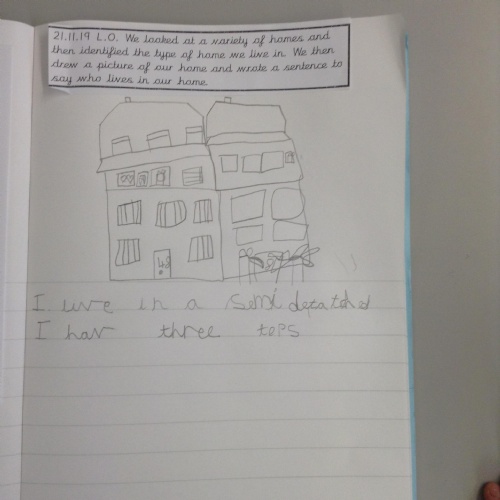 21.11.19 L.O. We looked at a variety of homes and
then identified the type of home we live in. We then
drew a picture of our home and wrote a sentence to
say who lives in our home.
48
I live in a Semi detatched
I hav three teps